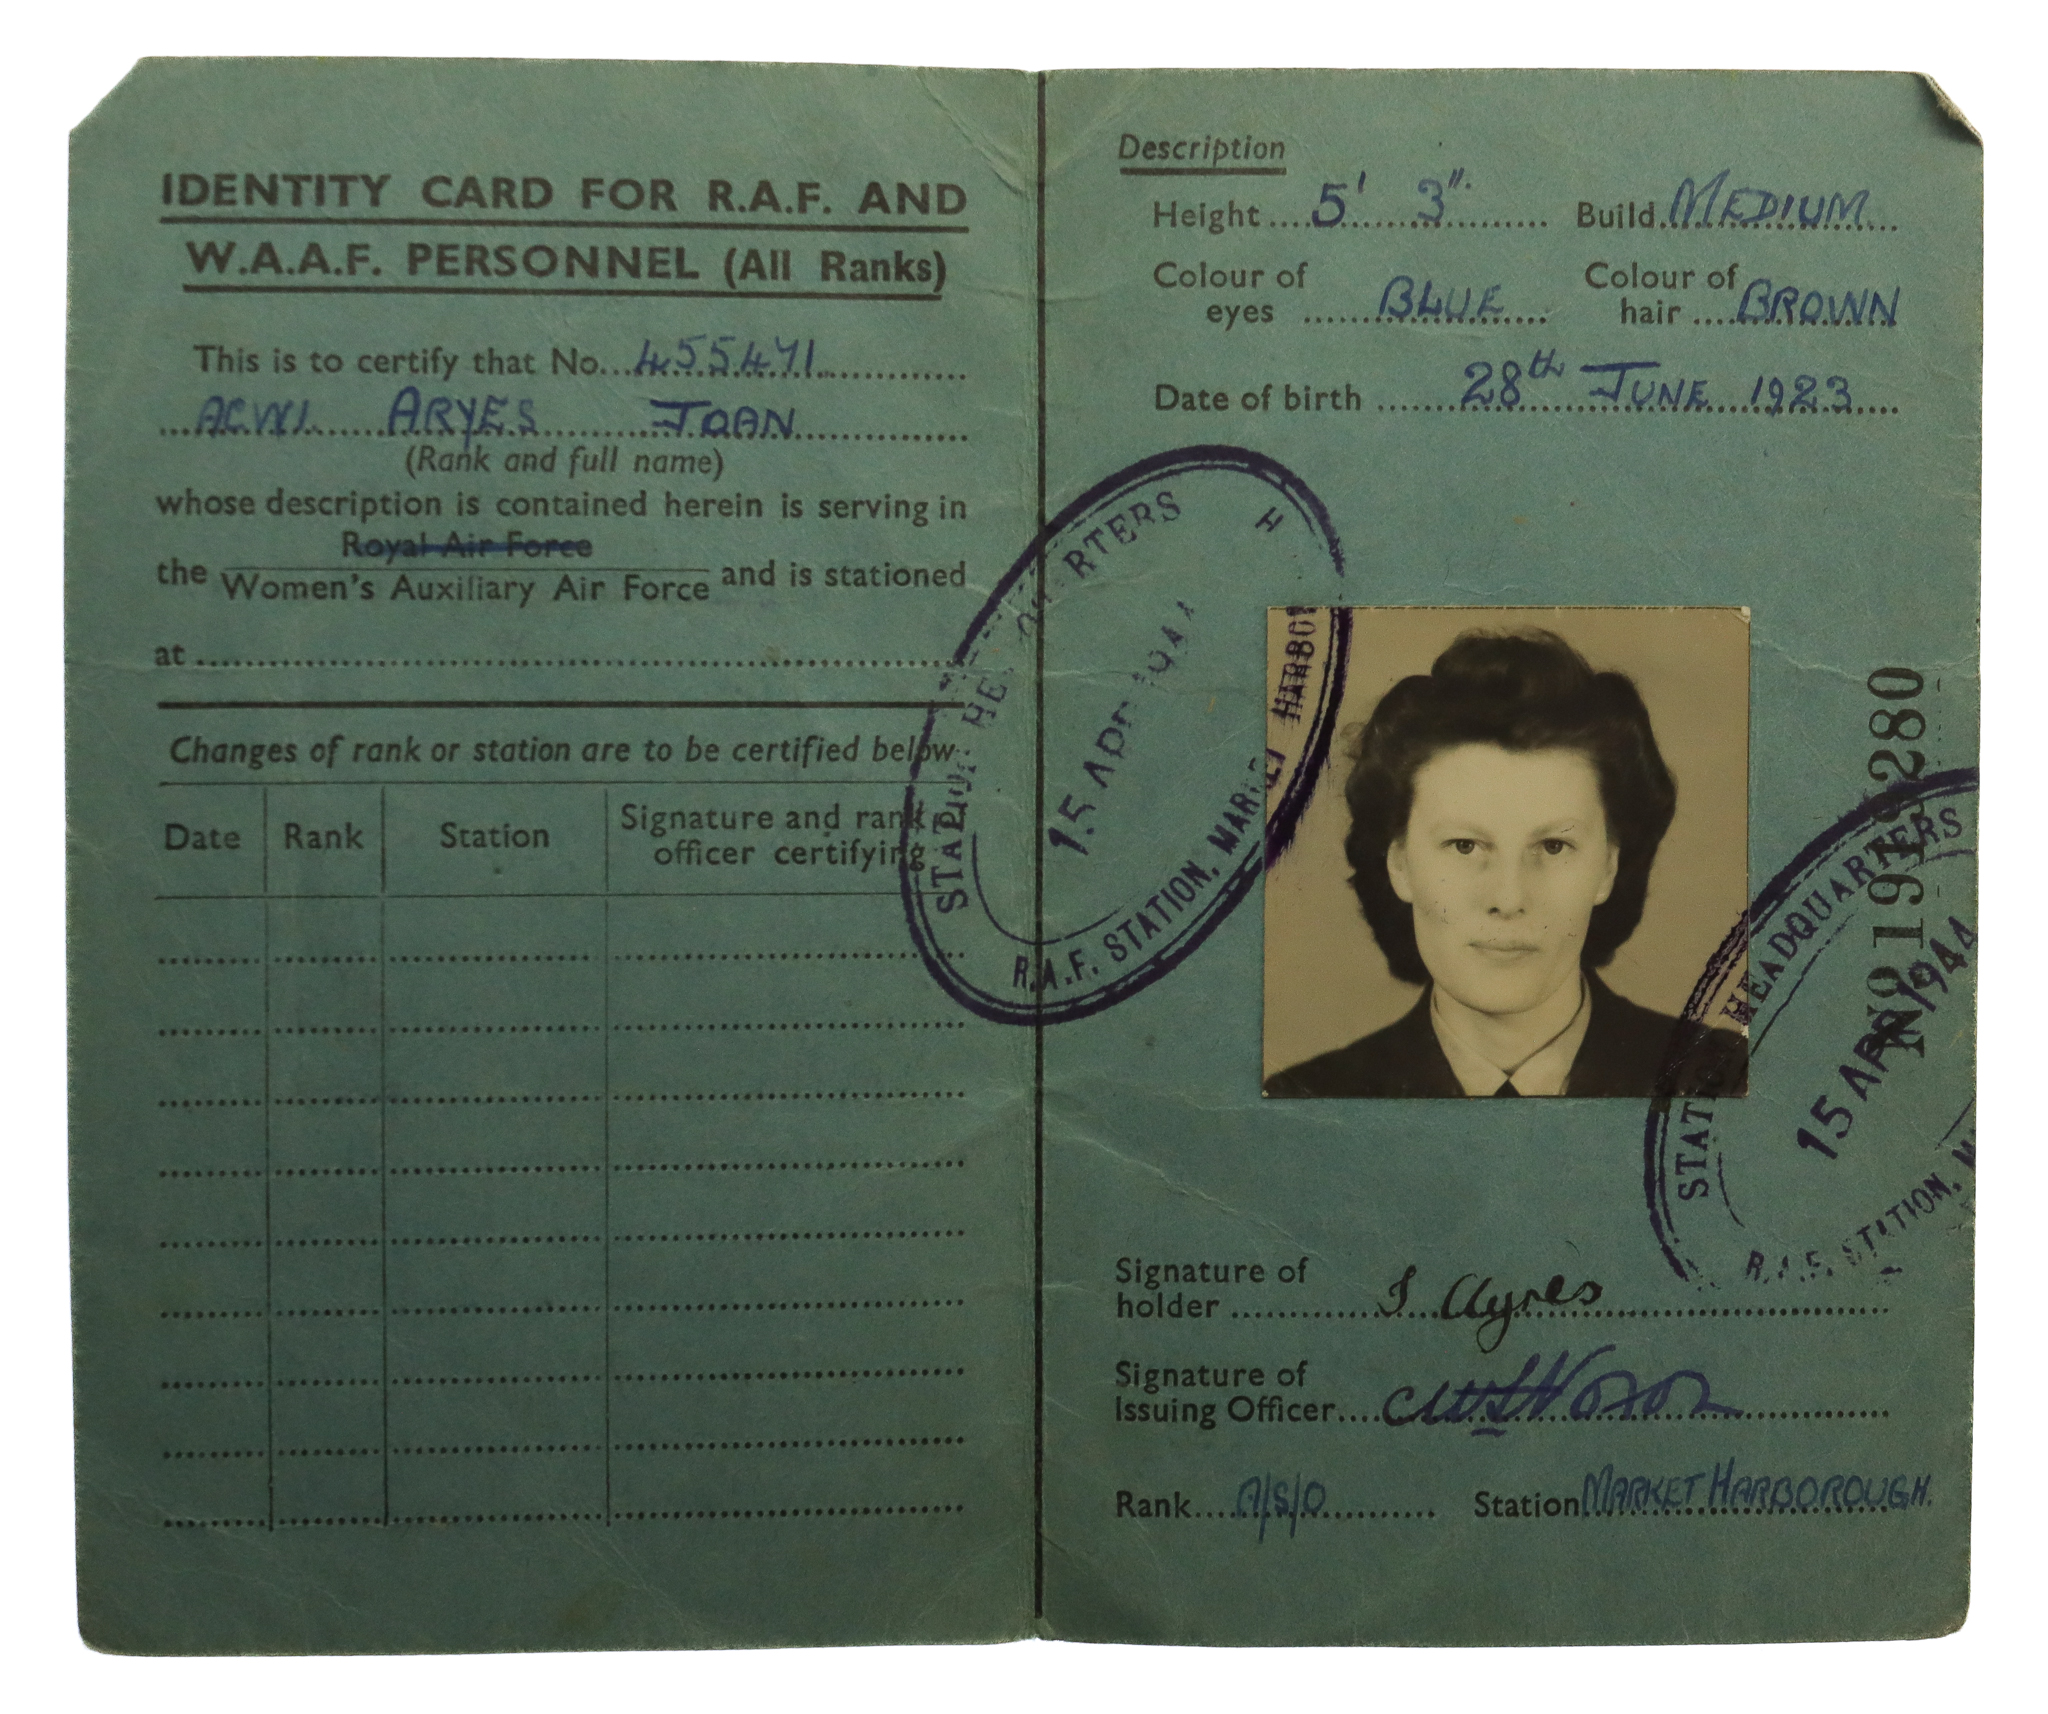 IDENTITY CARD FOR R.A.F. AND
W.A.A.F. PERSONNEL (All Ranks)
This is to certify that No. 455471
ACW1. ARYES JOAN
(Rank and full name)
whose description is contained herein is serving in
Royal Air Force
the Women's Auxiliary Air Force and is stationed
at
Changes of rank or station are to be certified below
Date Rank Station Signature and rank
officer certifying
Description
Height 5' 3". Build MEDIUM
Colour of Colour of
eyes BLUE hair BROWN
Date of birth 28th JUNE 1923
15 APR 1944
R.A.F. STATION, MARKET HARBO
STATION HEADQUARTERS
15 APR 1944
R.A.F. STATION, M
Signature of
holder J Ayres
Signature of
Issuing Officer
Rank A/S/O Station MARKET HARBOROUGH.